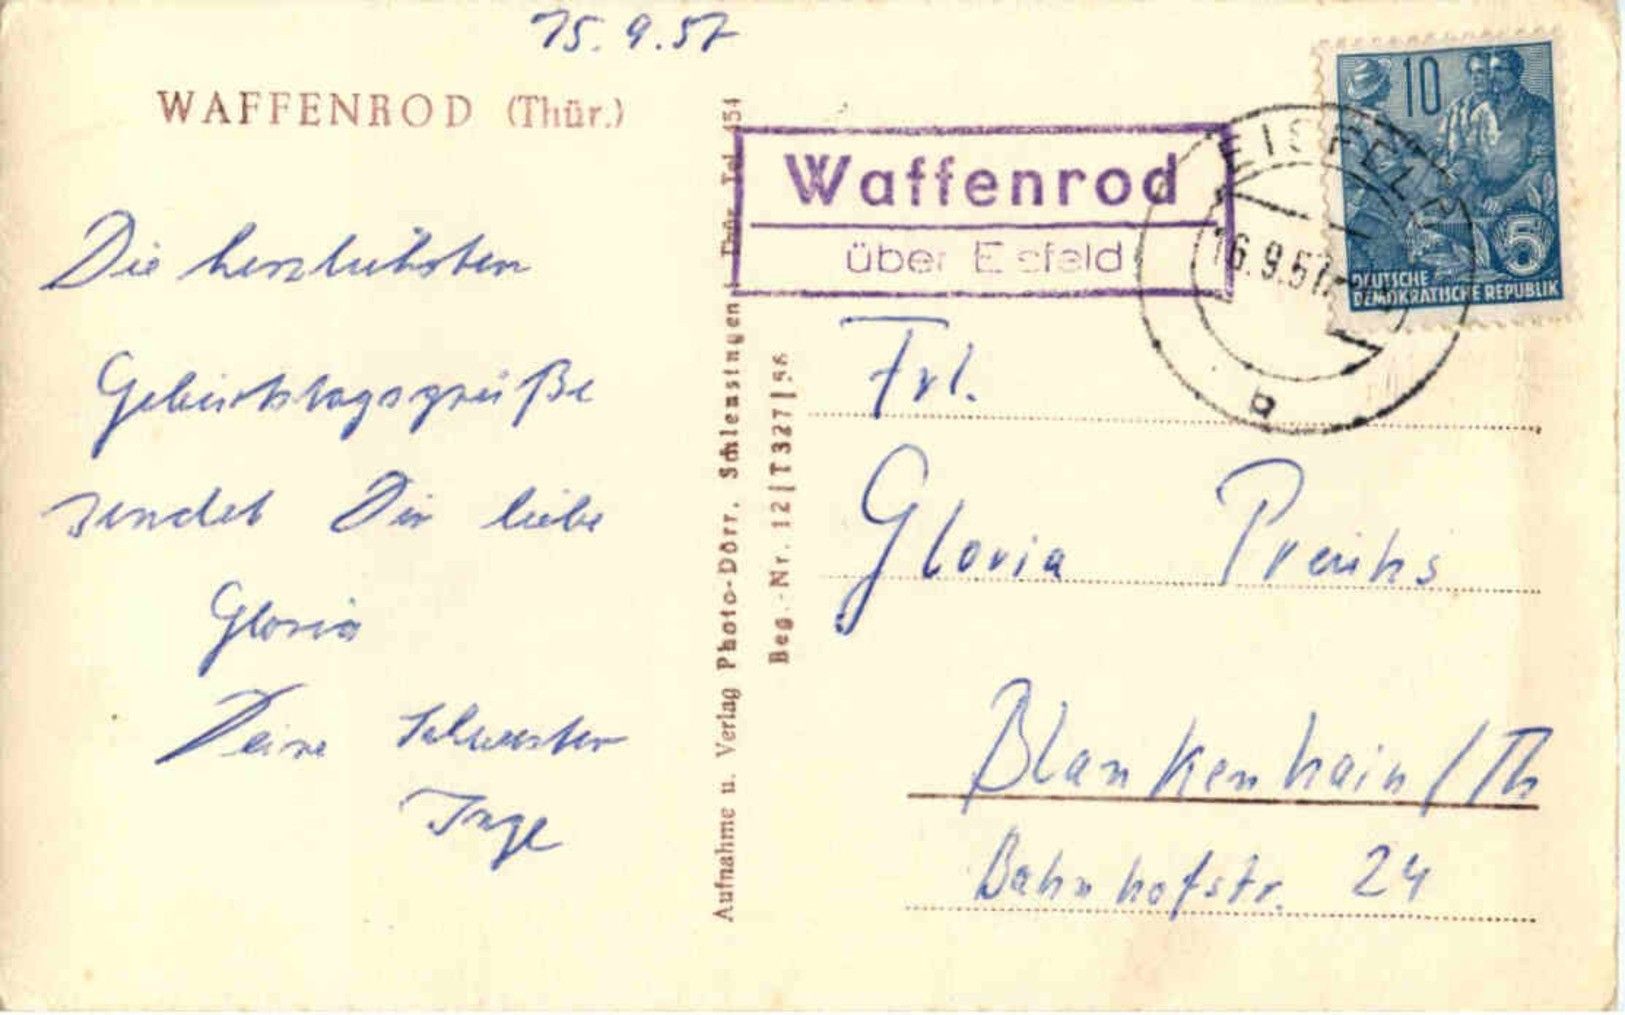 15.9.57
WAFFENROD (Thür.)
Die herzlichsten
Geburtstagsgrüße
sendet Dir liebe
Gloria
Deine Schwester
Inge
Aufnahme u. Verlag Photo-Dörr, Schleusingen Thür. Tel. 454
Beg.-Nr. 12|T327|56
Waffenrod
über Eisfeld
EISFELD
16.9.57
a
10
5
DEUTSCHE
DEMOKRATISCHE REPUBLIK
Frl.
Gloria
Blankenhain/Th
Bahnhofstr. 24